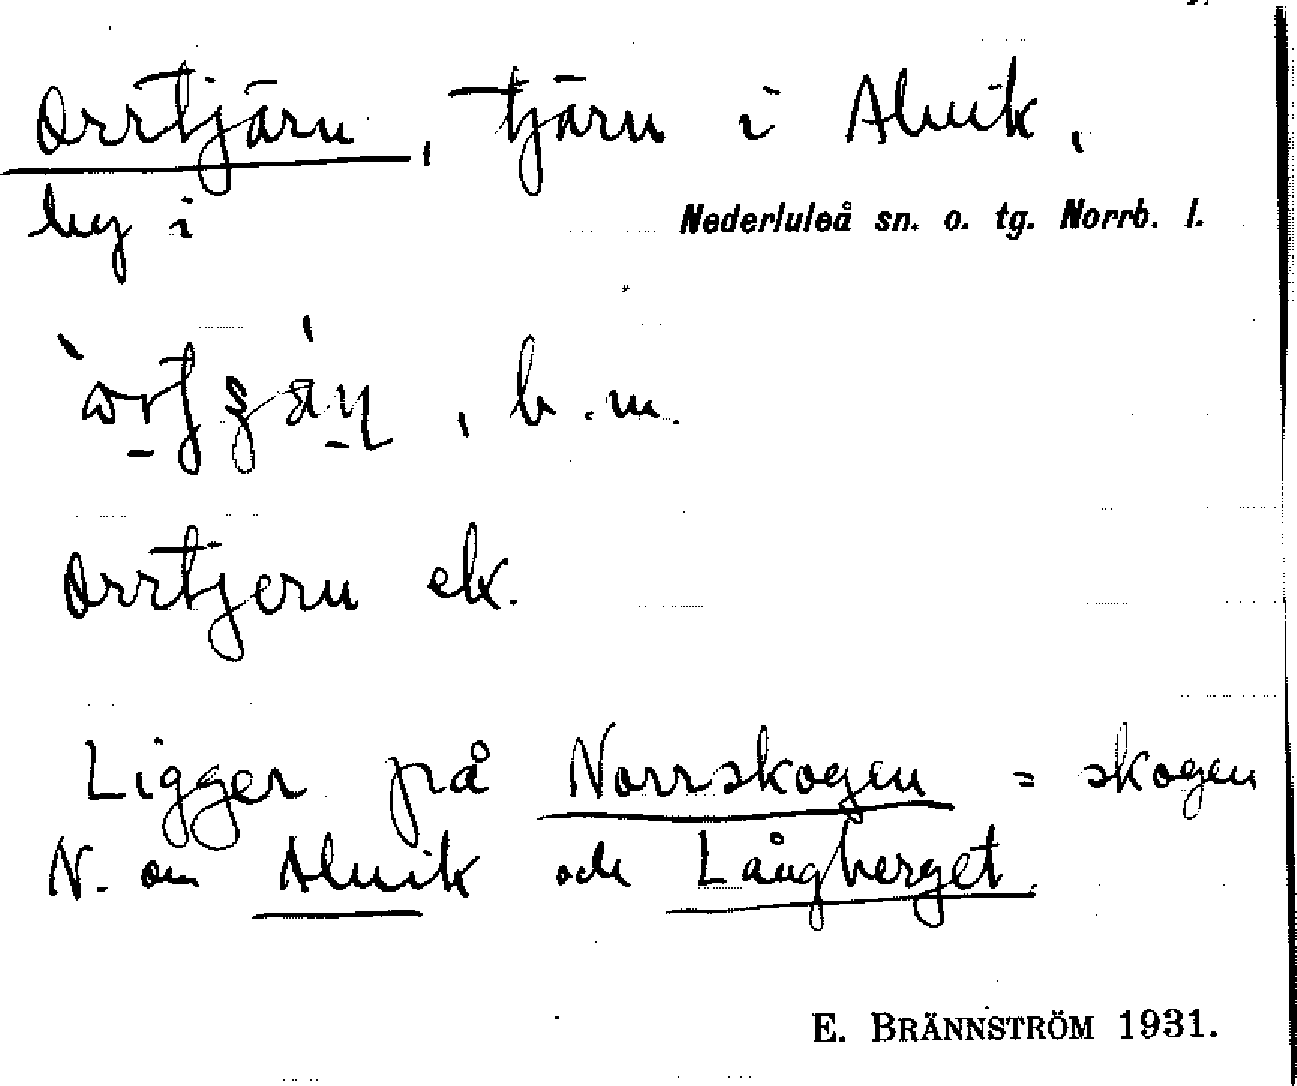 Orrtjärn, tjärn i Alvik,
by i Nederluleå sn. o. tg. Norrb. l.
, b. m.
Orrtjern ek.
Ligger på Norrskogen = skogen
N. om Alvik och Långberget
E. BRÄNNSTRÖM 1931.